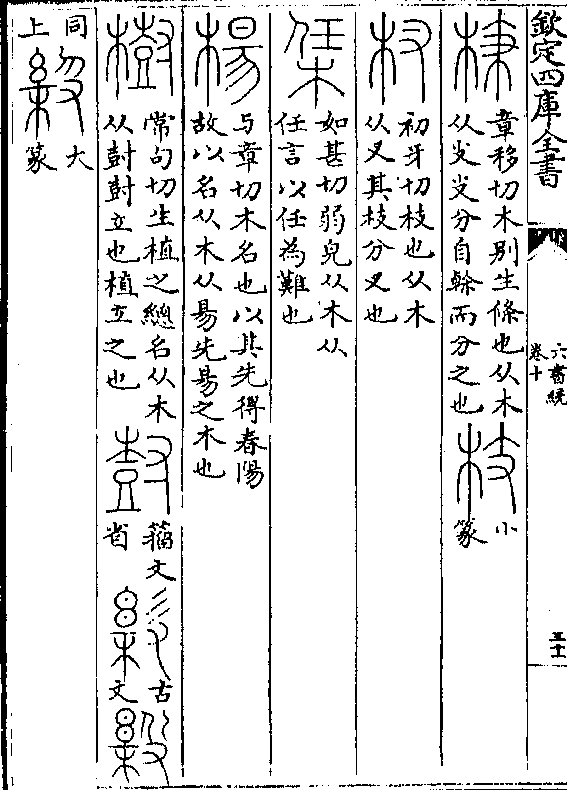 欽定四庫全書
六書統
卷十
枝
章移切木別生條也从木
从支支分自榦而分之也
枝
小
篆
杈
初牙切枝也从木
从叉其枝分叉也
栠
如甚切弱皃从木从
任言以任為難也
楊
与章切木名也以其先得春陽
故以名从木从昜先昜之木也
樹
常句切生植之總名从木
从尌尌立也植立之也
籒文
省
古
文
同
上
大
篆